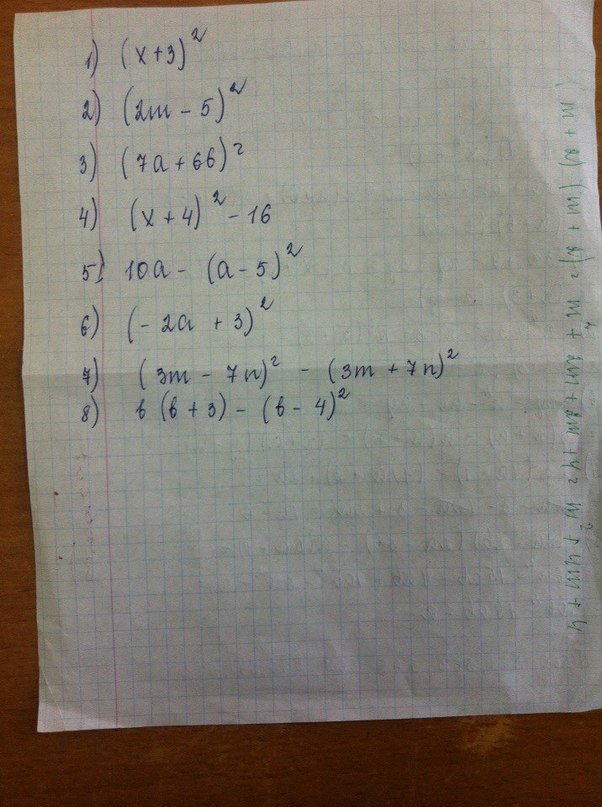 1) (x+3)²
2) (2m - 5)²
3) (7a + 6b)²
4) (x+4)² - 16
5) 10a - (a-5)²
6) (-2a + 3)²
7) (3m - 7n)² - (3m + 7n)²
8) b (b+3) - (b-4)²
(m + 2) (m + 2) = m² + 2m + 2m + 4 = m² + 4m + 4